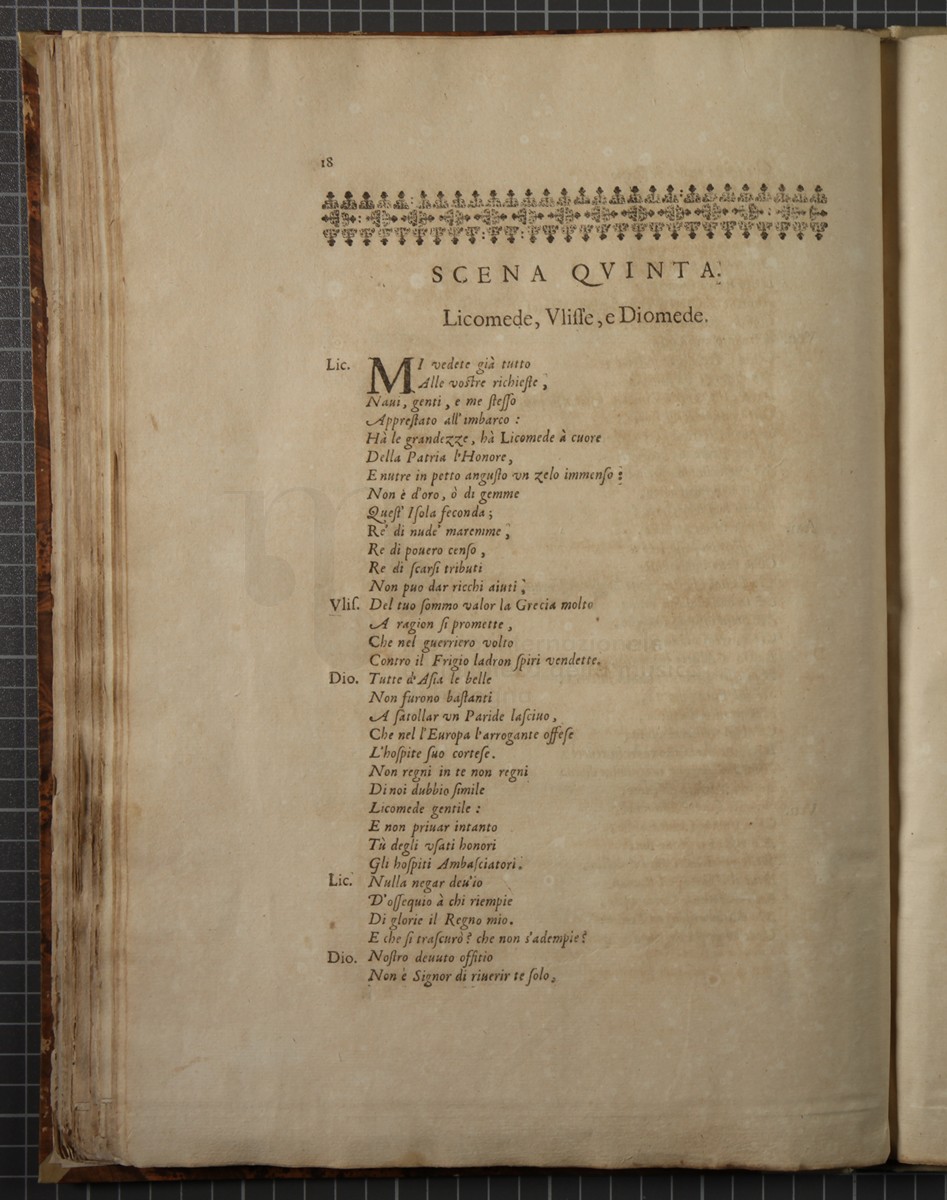 18
SCENA QVINTA.
Licomede, Vliſſe, e Diomede.
Lic. MI vedete già tutto
Alle voſtre richieſte,
Naui, genti, e me ſteſſo
Appreſtato all'imbarco:
Hà le grandezze, hà Licomede à cuore
Della Patria l'Honore,
E nutre in petto anguſto vn zelo immenſo:
Non è d'oro, ò di gemme
Queſt' Iſola feconda;
Re' di nude' maremme,
Re di pouero cenſo,
Re di ſcarſi tributi
Non puo dar ricchi aiuti;
Vliſ. Del tuo ſommo valor la Grecia molto
A ragion ſi promette,
Che nel guerriero volto
Contro il Frigio ladron ſpiri vendette.
Dio. Tutte d'Aſia le belle
Non furono baſtanti
A ſatollar vn Paride laſciuo,
Che nel l'Europa l'arrogante offeſe
L'hoſpite ſuo corteſe.
Non regni in te non regni
Di noi dubbio ſimile
Licomede gentile:
E non priuar intanto
Tù degli vſati honori
Gli hoſpiti Ambaſciatori.
Lic. Nulla negar deu'io
D'oſſequio à chi riempie
Di glorie il Regno mio.
E che ſi traſcurò? che non s'adempie?
Dio. Noſtro deuuto offitio
Non è Signor di riuerir te ſolo,